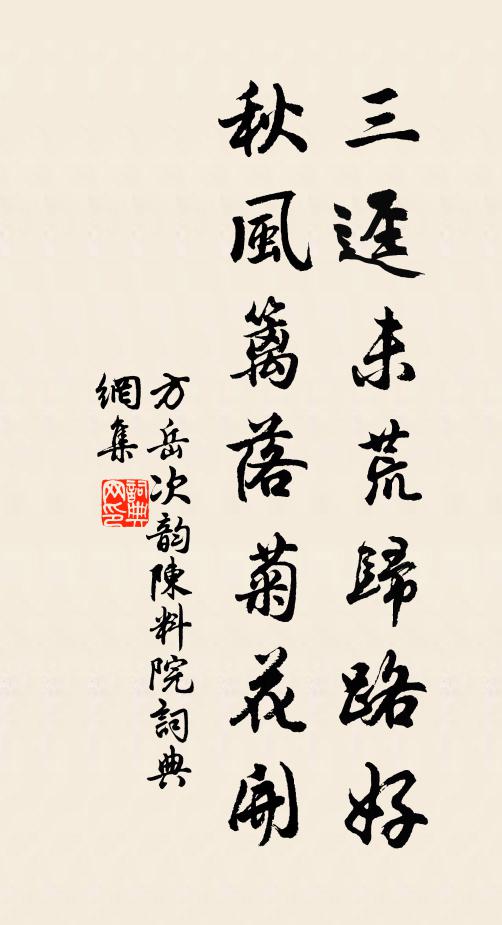 三逕未荒歸路好
秋風籬落菊花開
方岳次韵陳料院詞典
網集
詞典網印